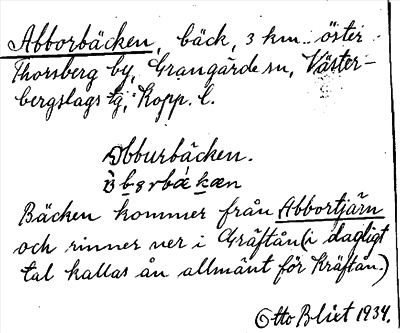 Abborbäcken, bäck, 3 km. öster
Thorsberg by, Grangärde sn, Väster-
bergslags tg, Kopp. l.
Abburbäcken.
Bäcken kommer från Abbortjärn
och rinner ner i Gräftån (i dagligt
tal kallas ån allmänt för Kräftån.)
Otto Blixt 1934.